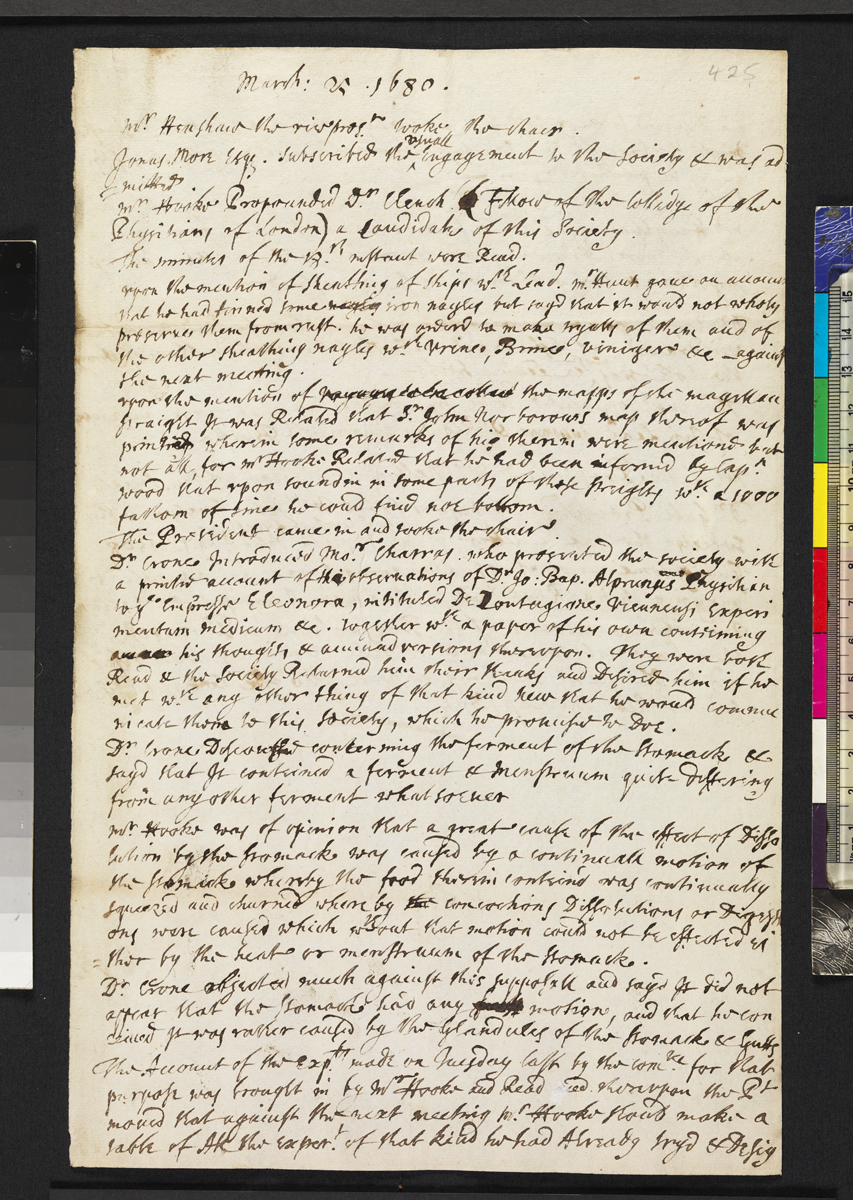 425
March: 25 . 1680 .
Mr Henshaw the vicepres.nt tooke the chair .
Jonas More Esqr. subscribed the usuall Engagement to the Society & was ad
mitted
Mr Hooke Propounded Dr Clench (a Fellow of the Colledge of the
Physitians of London) a Candidate of this Society .
The minutes of the 18.th instant were Read.
upon the mention of sheathing of ships wth Lead. mr Hunt gave an account
that he had tinned some iron nayles but sayd that it would not wholy
preserve them from rust. he was orderd to make tryalls of them and of
the other sheathing nayles wth Urine, Brine, viniger &c — against
the next meeting.
upon the mention of the mapps of the magellan
straight It was Related that Sr John Narborows map thereof was
printed wherein some remarks of his therin were mentioned but
not all, for mr Hooke Related that he had been informd by Capn
wood that upon soundin in some parts of these streights wth a 1000
fathom of line he could find noe bottom.
The President came in and tooke the chair.
Dr Crone Introduced Mor Charras . who presented the society with
a printed account of the observations of Dr Jo: Bap. Alprunus Physitian
to ye Empresse Eleonora, intituled De Contagione Viennensi Experi
mentum medicum &c. together wth a paper of his own containing
his thoughts & animadversions thereupon. They were both
Read & the Society Returned him their thanks and Desired him if he
met wth any other thing of that kind new that he would commu
nicate them to this Society, which he promisd to Doe.
Dr Crone Discoursed concerning the ferment of the stomack &
sayd that It contained a ferment & menstruum quite differing
from any other ferment whatsoever
mr Hooke was of opinion that a great cause of the effect of Disso
lution by the stomack was caused by a continuall motion of
the stomack whereby the food therein containd was continually
squeezed and churned where by concoctions Dissolutions or Digesti
ons were caused which wthout that motion could not be effected ei
=ther by the heat or menstruum of the stomack.
Dr Crone objected much against this supposall and sayd It did not
appear that the stomack had any motion, and that he con
ceived It was rather caused by the Glandules of the stomack & Gutts
The Account of the Expts made on Tuesday last by the comtee for that
purpose was brought in by Mr Hooke and Read and thereupon the Pt
moved that against the next meeting mr Hooke should make a
table of All the expert of that kind he had Already tryd & Desig